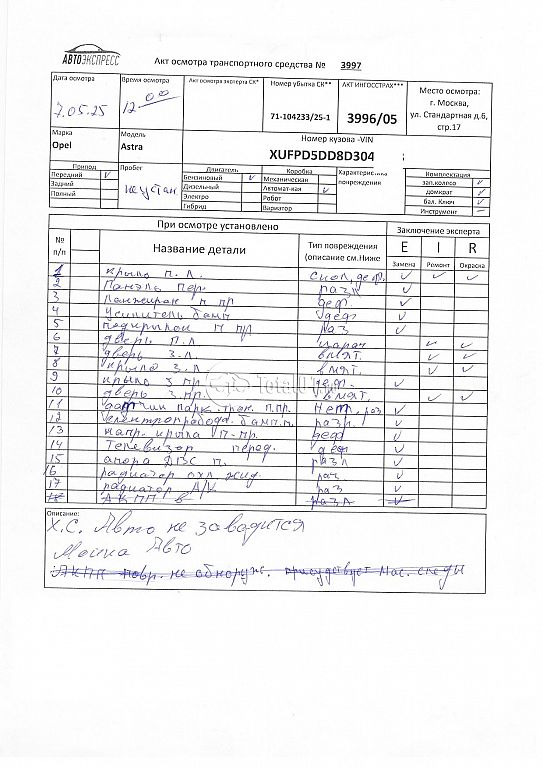 АВТОЭКСПРЕСС
Акт осмотра транспортного средства № 3997
Дата осмотра
7.05.25
Время осмотра
12 00
Акт осмотра эксперта СК*
Номер убытка СК**
71-104233/25-1
АКТ ИНГОССТРАХ***
3996/05
Место осмотра:
г. Москва,
ул. Стандартная д.6,
стр.17
Марка
Opel
Модель
Astra
Номер кузова -VIN
XUFPD5DD8D304
Привод
Передний ✓
Задний
Полный
Пробег
неустан
Двигатель
Бензиновый ✓
Дизельный
Электро
Гибрид
Коробка
Механическая
Автомат-кая ✓
Робот
Вариатор
повреждения
Комплектация
зап.колесо ✓
домкрат ✓
бал. Ключ ✓
Инструмент –
При осмотре установлено
Заключение эксперта
№ п/п
Название детали
Тип повреждения (описание см.Ниже
E Замена
I Ремонт
R Окраска
1 крыло п.л. Скол, деф. ✓ ✓ ✓
2 Панэль пер. раз ✓
3 Ланжирон п пр деф. ✓
4 Усилитель бамп деф ✓
5 подкрылок п пр раз ✓
6 дверь п.л. царап ✓ ✓
7 дверь з.л. вмят. ✓ ✓
8 крыло з.л. вмят. ✓ ✓
9 крыло з пр. деф. ✓
10 дверь з пр. вмят. ✓ ✓
11 датчик парк. трон. п.пр. Нет, раз ✓
12 электропровода бамп.п. разр. ✓
13 напр. крыла п-пр. деф ✓
14 Телевизор перед. деф ✓
15 опора ДВС п. разл ✓
16 радиатор охл жид. раз ✓
17 радиатор А/К раз ✓
АКПП в разл ✓
Описание:
Х.С. Авто не заводится
Мойка Авто
АКПП повр. не обнаруж. присудствует мас. следы
Total